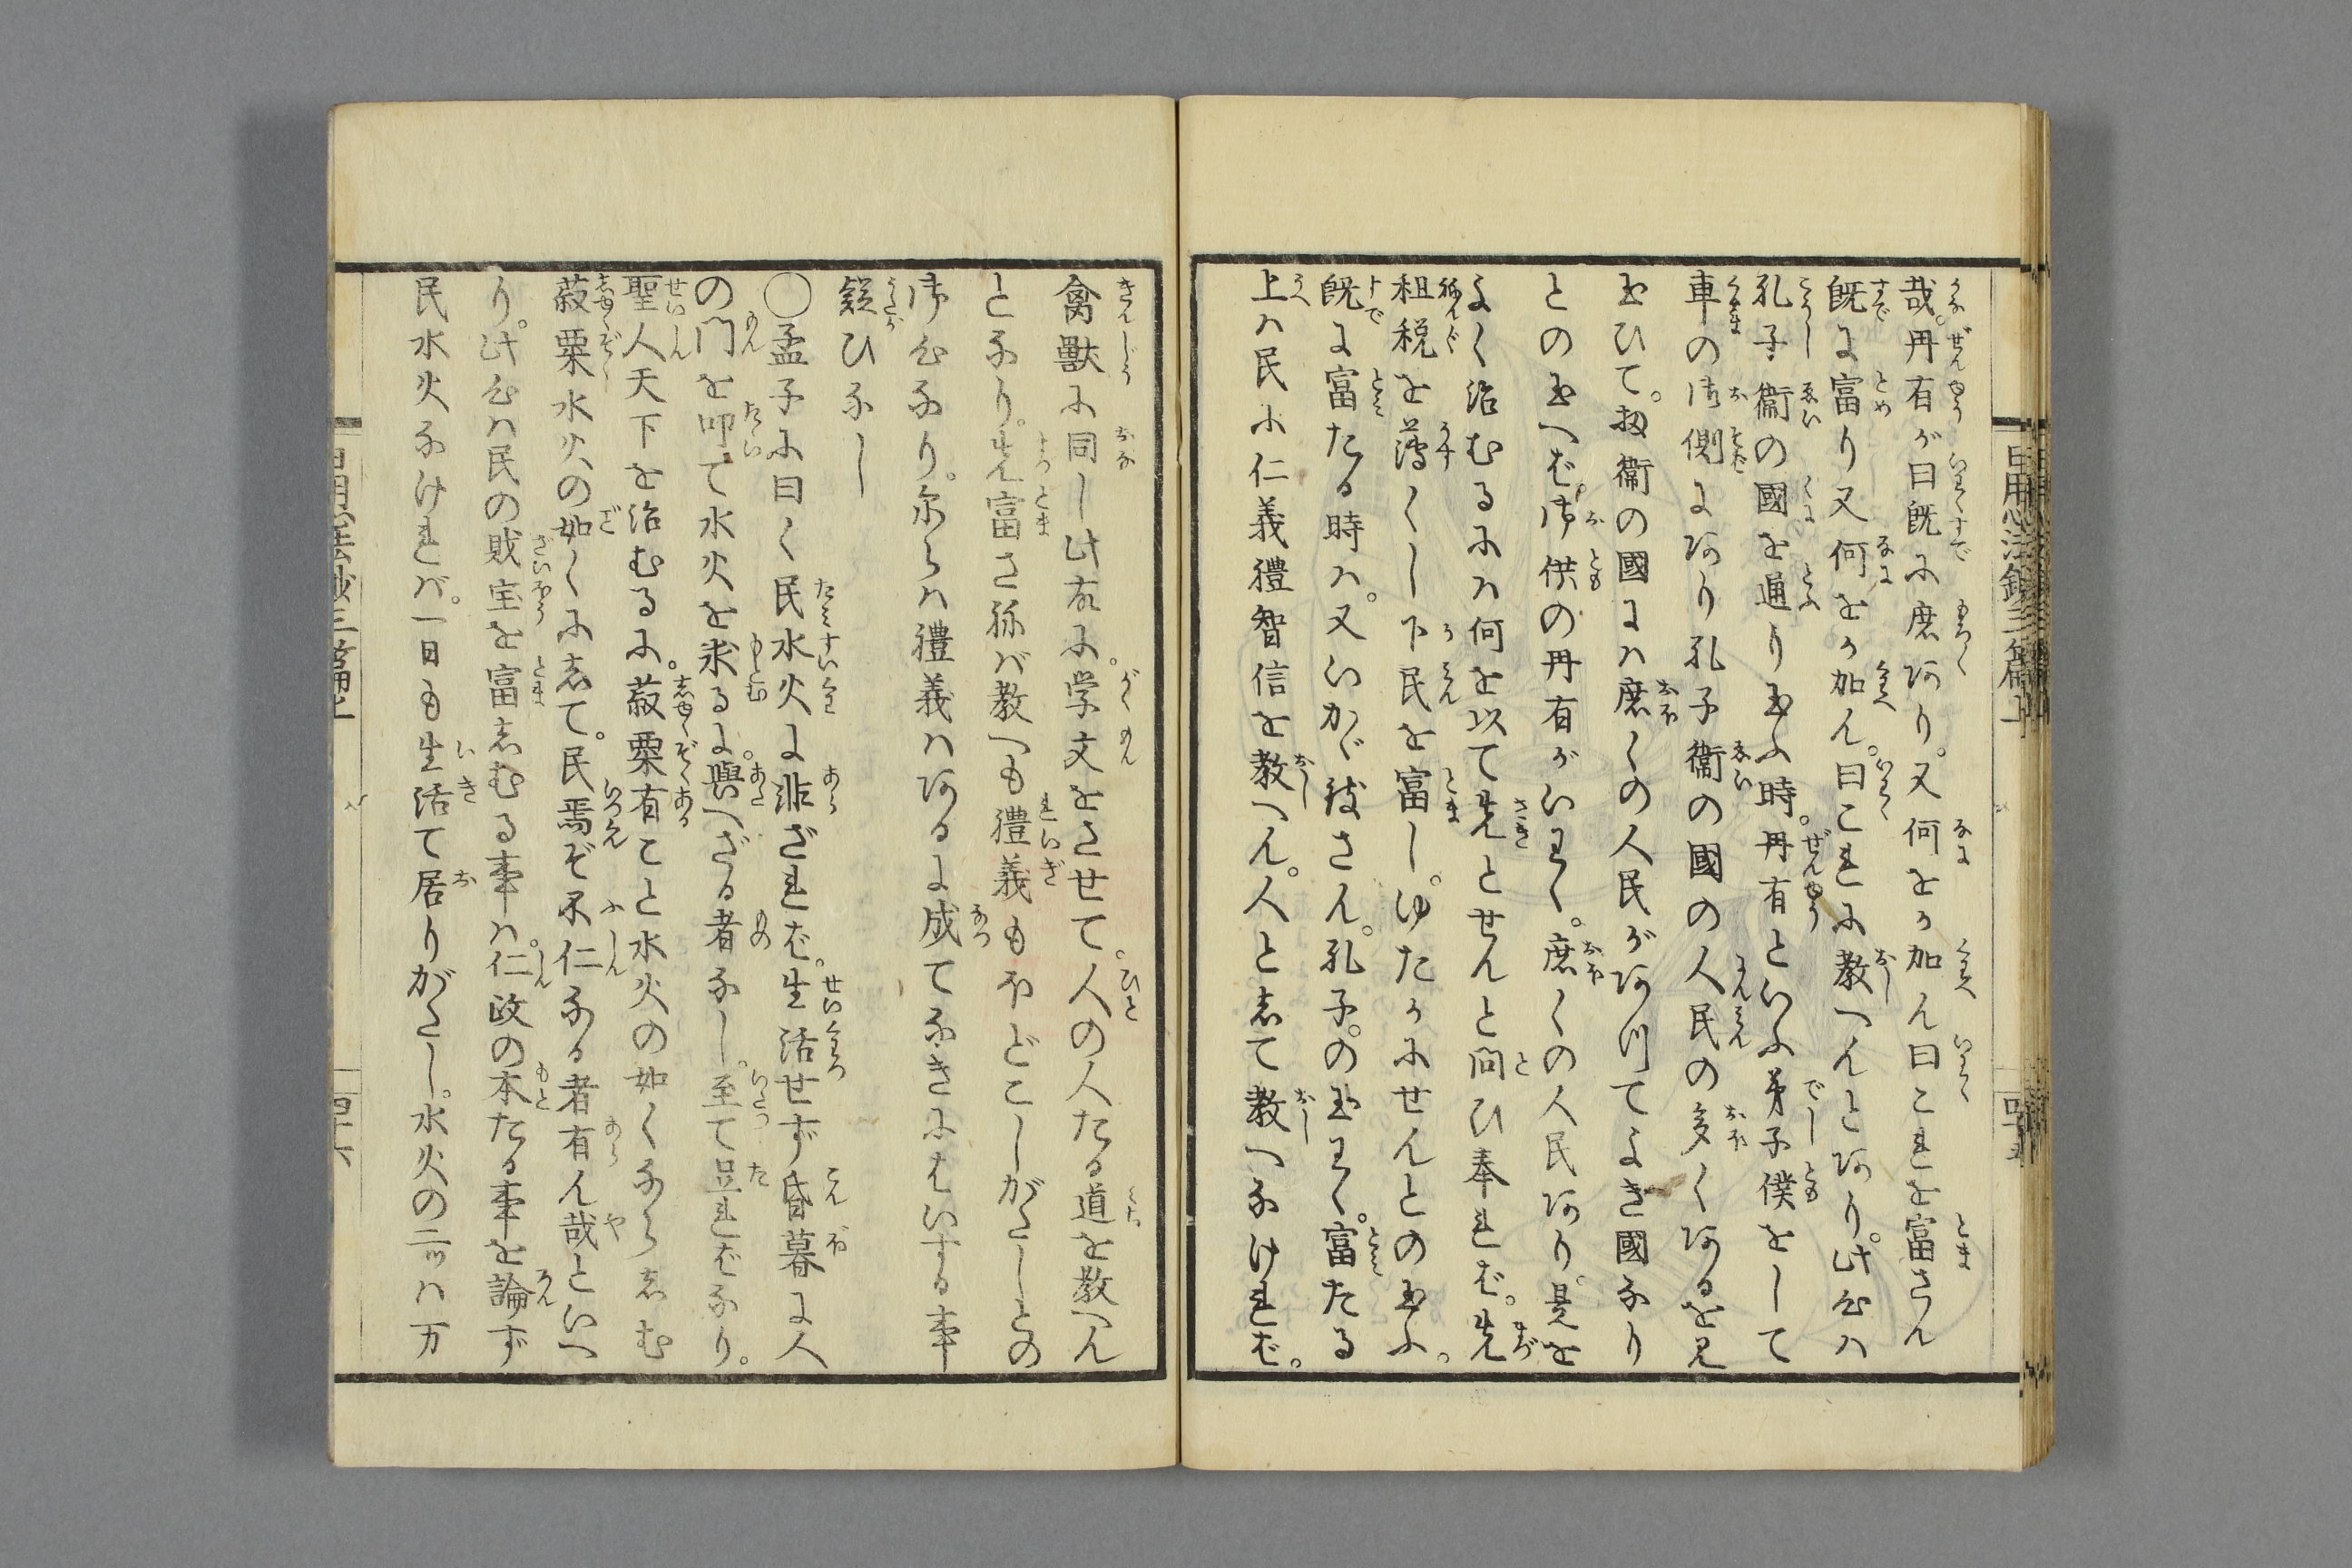 哉。冉有が曰既に庶あり。又何をか加ん曰これを富さん
既に富り又何をか加ん。曰これに教へんとあり。此心ハ
孔子衞の國を通り玉ふ時。冉有といふ弟子僕をして
車の御側にあり孔子衞の國の人民の多くあるを見
玉ひて。扨衞の國にハ庶くの人民があつてよき國なり
との玉へば。御供の冉有がいわく。庶くの人民あり。是を
よく治むるにハ何を以て先とせんと問ひ奉れば。先
租税を薄くし下民を富し。ゆたかにせんとの玉ふ。
既に富たる時ハ。又いかゞ致さん。孔子。の玉わく。富たる
上ハ民に仁義禮智信を教へん。人として教へなければ。
禽獸に同し此故に。学文をさせて。人の人たる道を教へん
となり。先富さねば教へも禮義もほどこしがたしとの
御心なり。尓らハ禮義ハあるに成てなきにはいする事
疑ひなし
〇孟子に曰く民水火に非ざれば。生活せず昏暮に人
の門を叩て水火を求るに。與へざる者なし。至て足ればなり。
聖人天下を治むるに。菽粟有こと水火の如くならしむ
菽粟水火の如くにして。民焉ぞ不仁なる者有ん哉といへ
り。此心ハ民の財宝を富しむる事ハ。仁政の本たる事を論ず
民水火なければ。一日も生活て居りがたし。水火の二ツハ万
日用心法鈔三篇上
四十五